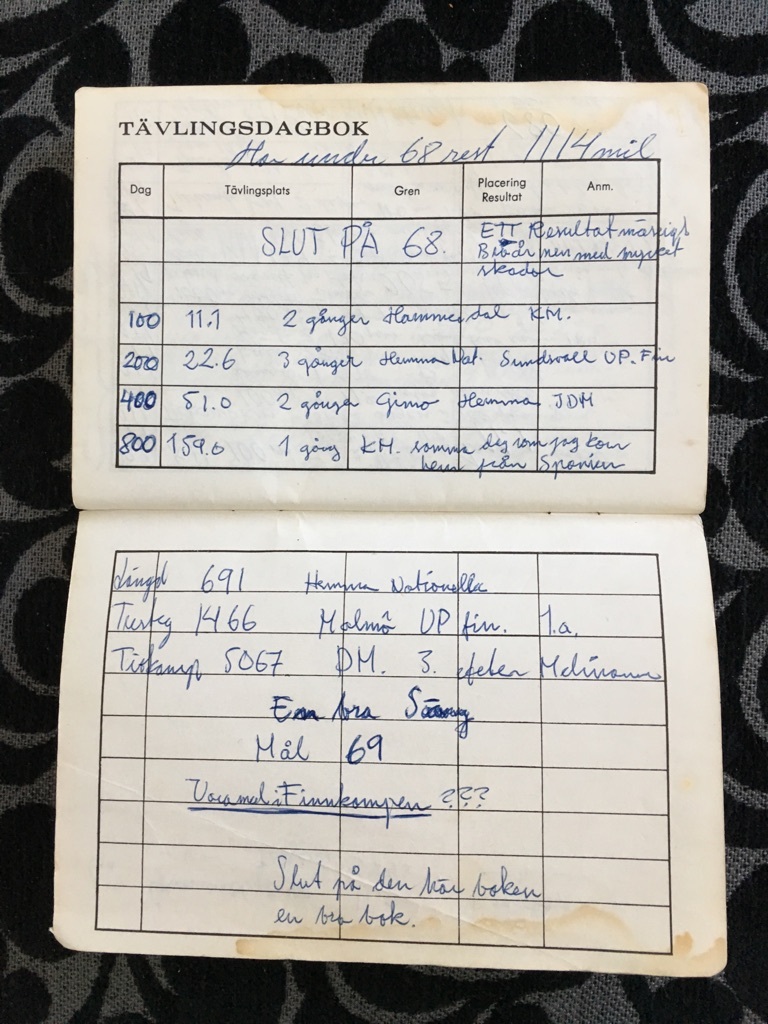 TÄVLINGSDAGBOK
Har under 68 rest 1114 mil
Dag Tävlingsplats Gren Placering Resultat Anm.
SLUT PÅ 68. ETT Resultatmässigt
Bra år men med mycket
skador
100 11.1 2 gånger Hammerdal KM.
200 22.6 3 gånger Hemma Nat. Sundsvall UP. Fin
400 51.0 2 gånger Gimo Hemma JDM
800 159.0 1 gång KM. samma dag som jag kom
hem från Spanien
Längd 691 Hemma Nationella
Tresteg 1466 Malmö UP fin. 1.a.
Tiokamp 5067 DM. 3. efter
En bra Säsong
Mål 69
Vara med i Finnkampen ???
Slut på den här boken
en bra bok.